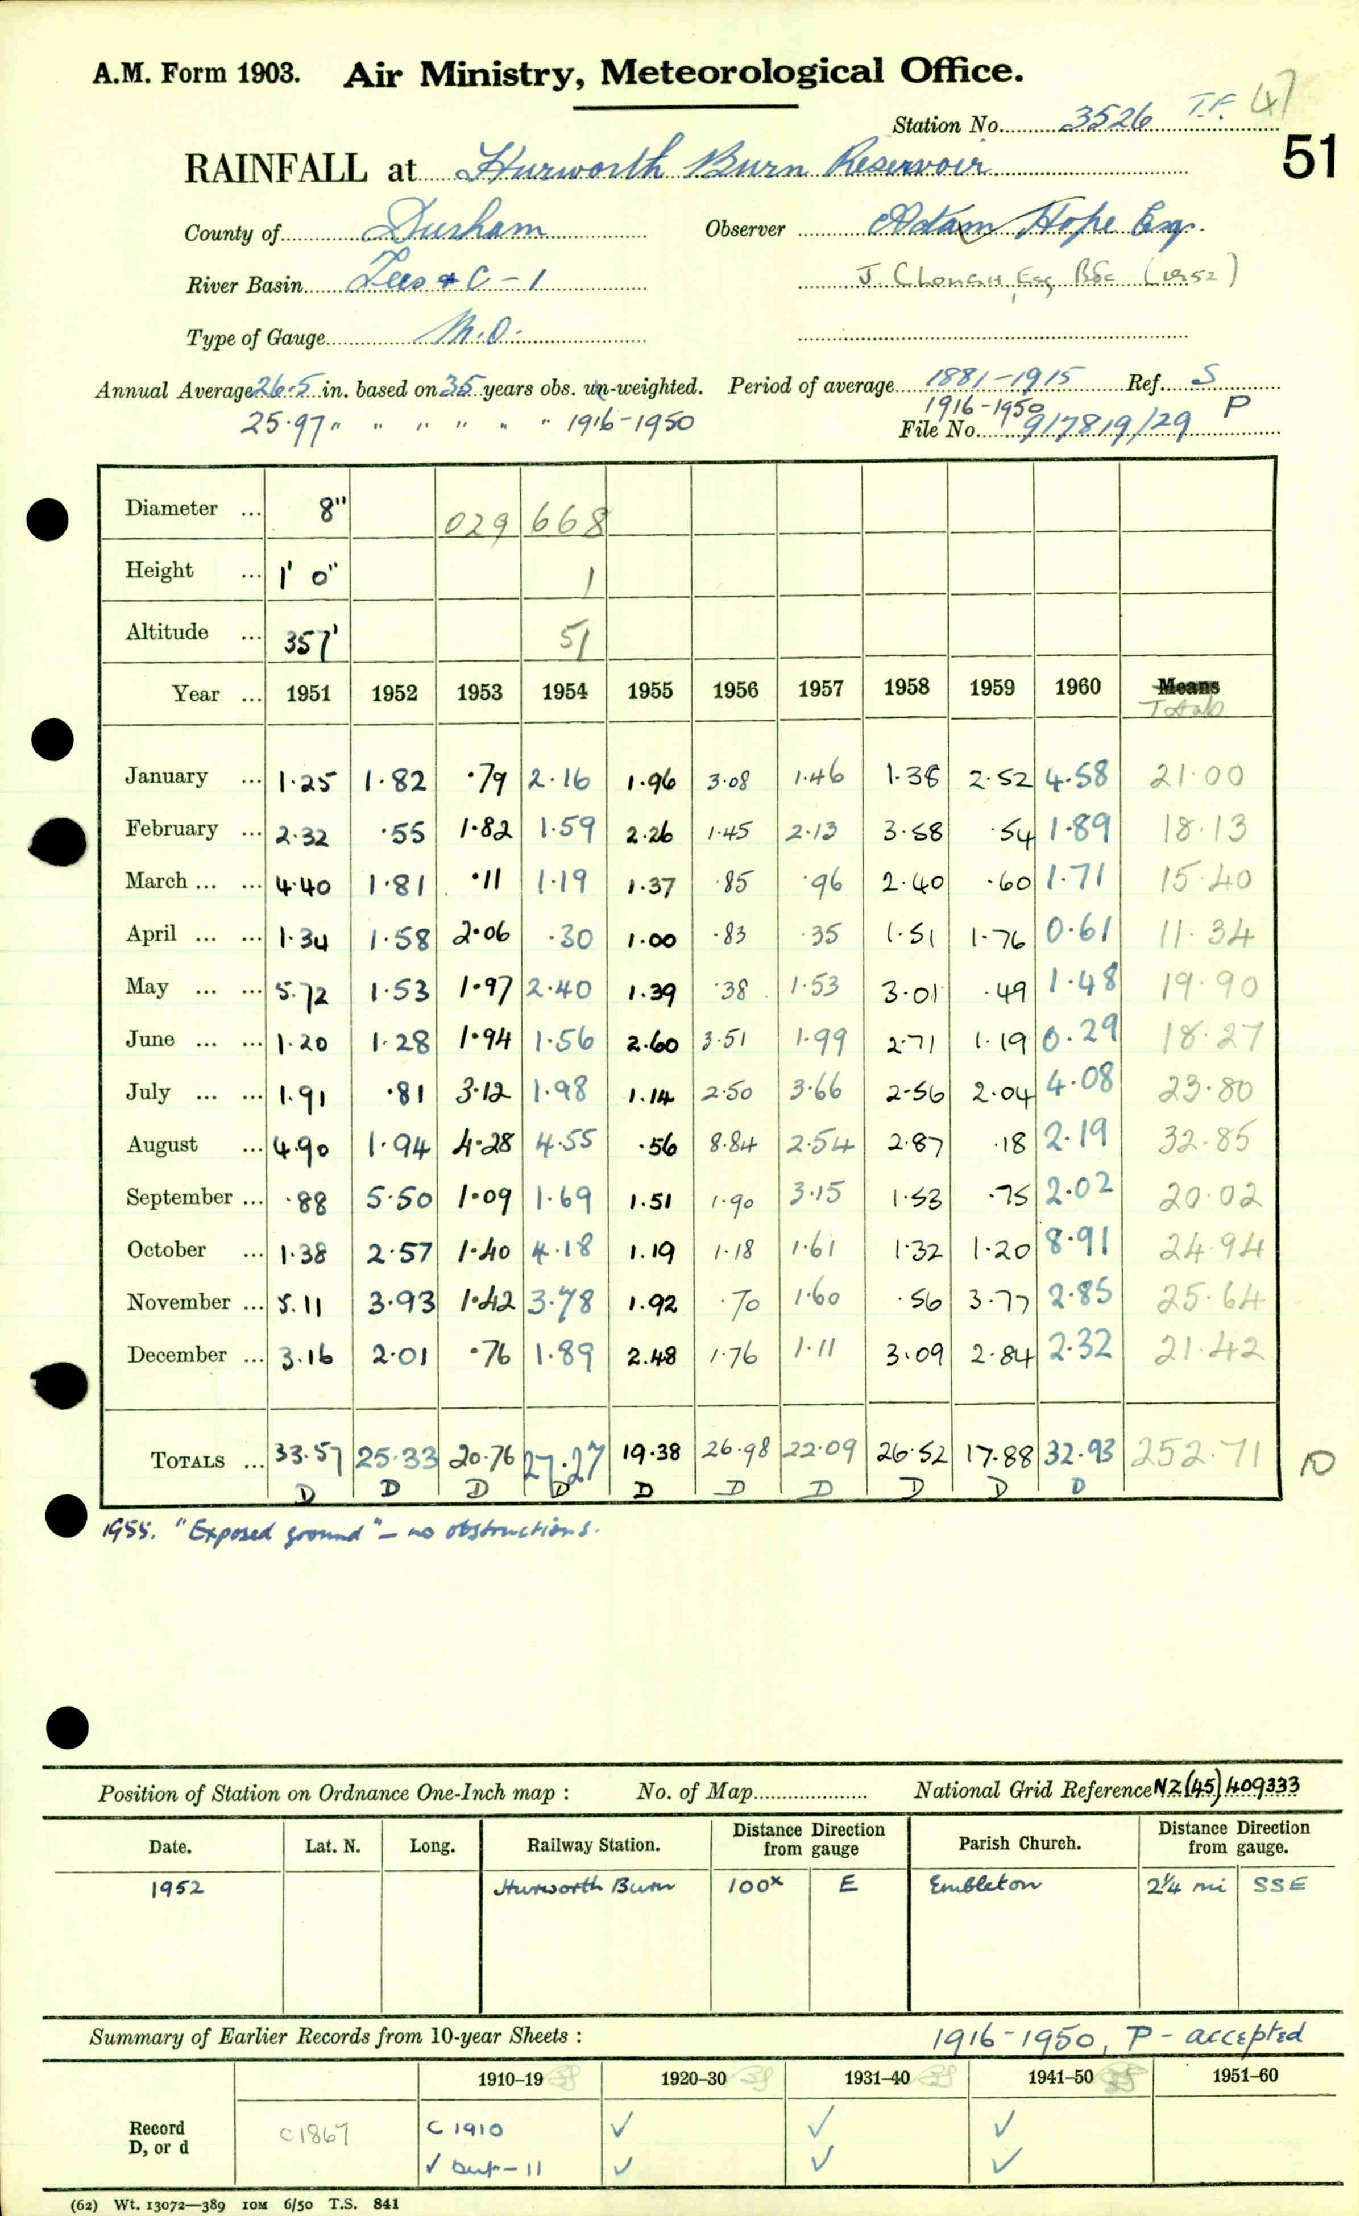 A.M. Form 1903. Air Ministry, Meteorological Office.
Station No. 3526 T.F. 47
51
RAINFALL at Hurworth Burn Reservoir
County of Durham Observer Adam Hope Esq.
River Basin Tees & C - 1 J. Clough Esq BSc (1952)
Type of Gauge M.O.
Annual Average 26.5 in. based on 35 years obs. un-weighted. Period of average 1881-1915 Ref. S
25.97 " " " " " " 1916-1950 1916-1950 P
File No. 917819/29
Diameter ... 8" 029 668
Height ... 1' 0" 1
Altitude ... 357' 51
Year ... 1951 1952 1953 1954 1955 1956 1957 1958 1959 1960 Means
Totals
January ... 1.25 1.82 .79 2.16 1.96 3.08 1.46 1.38 2.52 4.58 21.00
February ... 2.32 .55 1.82 1.59 2.26 1.45 2.13 3.58 .54 1.89 18.13
March ... ... 4.40 1.81 .11 1.19 1.37 .85 .96 2.40 .60 1.71 15.40
April ... ... 1.34 1.58 2.06 .30 1.00 .83 .35 1.51 1.76 0.61 11.34
May ... ... 5.72 1.53 1.97 2.40 1.39 .38 1.53 3.01 .49 1.48 19.90
June ... ... 1.20 1.28 1.94 1.56 2.60 3.51 1.99 2.71 1.19 0.29 18.27
July ... ... 1.91 .81 3.12 1.98 1.14 2.50 3.66 2.56 2.04 4.08 23.80
August ... 4.90 1.94 4.28 4.55 .56 8.84 2.54 2.87 .18 2.19 32.85
September ... .88 5.50 1.09 1.69 1.51 1.90 3.15 1.53 .75 2.02 20.02
October ... 1.38 2.57 1.40 4.18 1.19 1.18 1.61 1.32 1.20 8.91 24.94
November ... 5.11 3.93 1.42 3.78 1.92 .70 1.60 .56 3.77 2.85 25.64
December ... 3.16 2.01 .76 1.89 2.48 1.76 1.11 3.09 2.84 2.32 21.42
TOTALS ... 33.57 25.33 20.76 27.27 19.38 26.98 22.09 26.52 17.88 32.93 252.71 10
D D D D D D D D D D
1955. "Exposed ground" - no obstructions.
Position of Station on Ordnance One-Inch map : No. of Map National Grid Reference NZ(45)409333
Date. Lat. N. Long. Railway Station. Distance Direction from gauge Parish Church. Distance Direction from gauge.
1952 Hurworth Burn 100x E Embleton 2¼ mi SSE
Summary of Earlier Records from 10-year Sheets : 1916-1950, P - accepted
1910-19 1920-30 1931-40 1941-50 1951-60
Record D, or d c1867 C 1910 ✓ ✓ ✓
✓ -11 ✓ ✓ ✓
(62) Wt. 13072—389 10M 6/50 T.S. 841